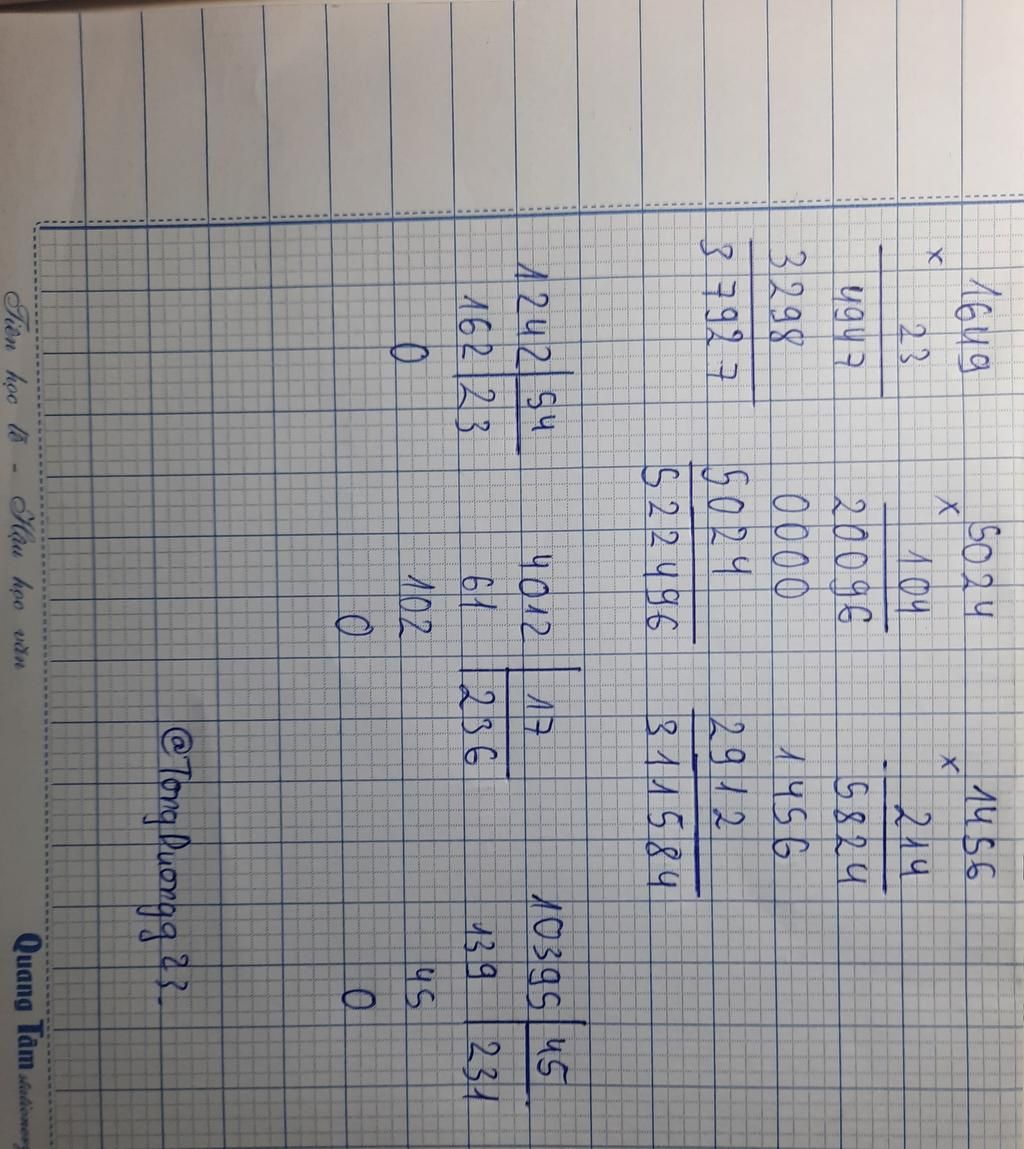 1649 5024 1456
× 23 × 104 × 214
4947 20096 5824
3298 0000 1456
37927 5024 2912
522496 311584
1242 54 4012 17 10395 45
162 23 61 236 139 231
0 102 45
0 0
@TongDuongg23.
Tiên học lễ - Hậu học văn Quang Tâm stationery